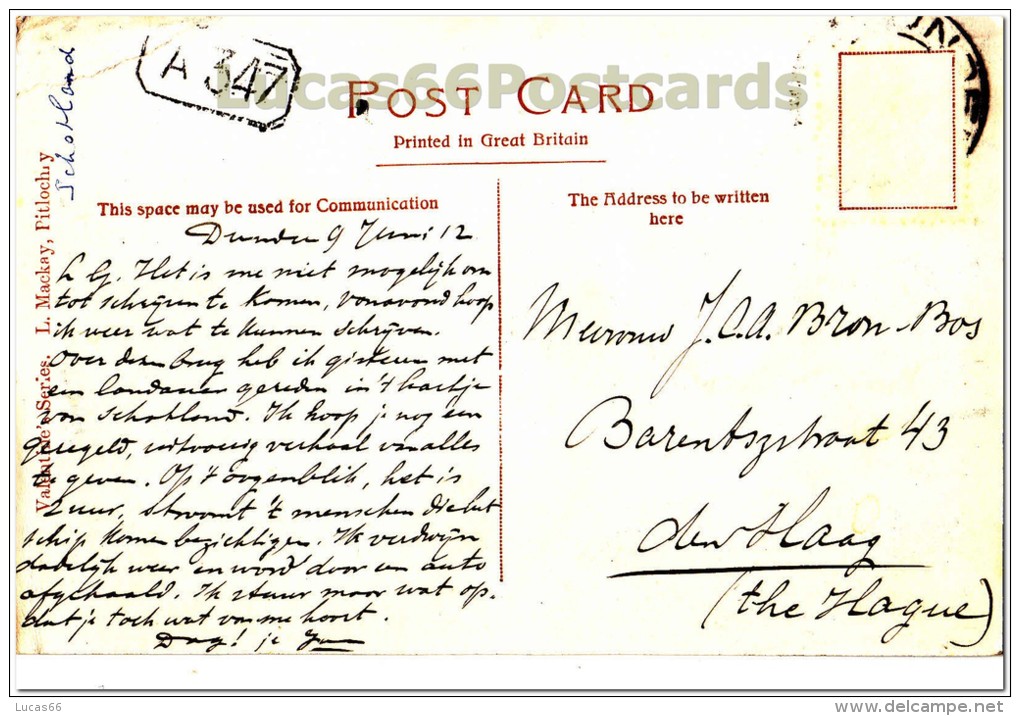 A 347
Lucas66Postcards
POST CARD
Printed in Great Britain
Schotland
Valentine's Series. L. Mackay, Pitlochry
This space may be used for Communication
The Address to be written
here
Dundee 9 Juni 12
L G. Het is me niet mogelijk om
tot schrijven te komen, vanavond hoop
ik weer wat te kunnen schrijven.
Over deze brug heb ik gisteren met
een landauer gereden in 't hartje
van Schotland. Ik hoop je nog een
geregeld, uitvoerig verhaal van alles
te geven. Op 't oogenblik, het is
2 uur, stroomt 't menschen die het
schip komen bezichtigen. Ik verdwijn
dadelijk weer en word door een auto
afgehaald. Ik stuur maar wat op,
dat je toch wat van me hoort.
Dag! je
Mevrouw J.C.A. Bron-Bos
Barentszstraat 43
den Haag
(the Hague)
Lucas66
www.delcampe.net